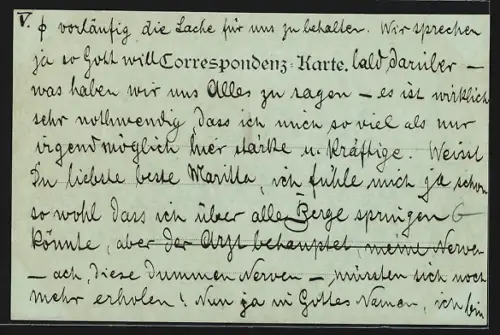 V. φ vorläufig die Sache für uns zu behalten. Wir sprechen
ja so Gott will Correspondenz-Karte. bald darüber –
was haben wir uns Alles zu sagen – es ist wirklich
sehr nothwendig dass ich mich so viel als nur
irgend möglich hier stärke u. kräftige. Weisst
Du liebste beste Maritta, ich fühle mich ja schon
so wohl dass ich über alle Berge springen
könnte, aber der Arzt behauptet, meine Nerven
– ach, diese dummen Nerven –, müssten sich noch
mehr erholen! Nun ja in Gottes Namen, ich bin